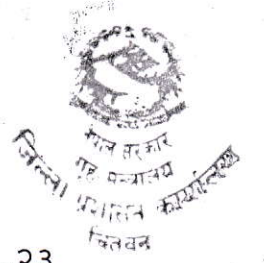 नेपाल सरकार
गृह मन्त्रालय
जिल्ला प्रशासन कार्यालय
चितवन
23